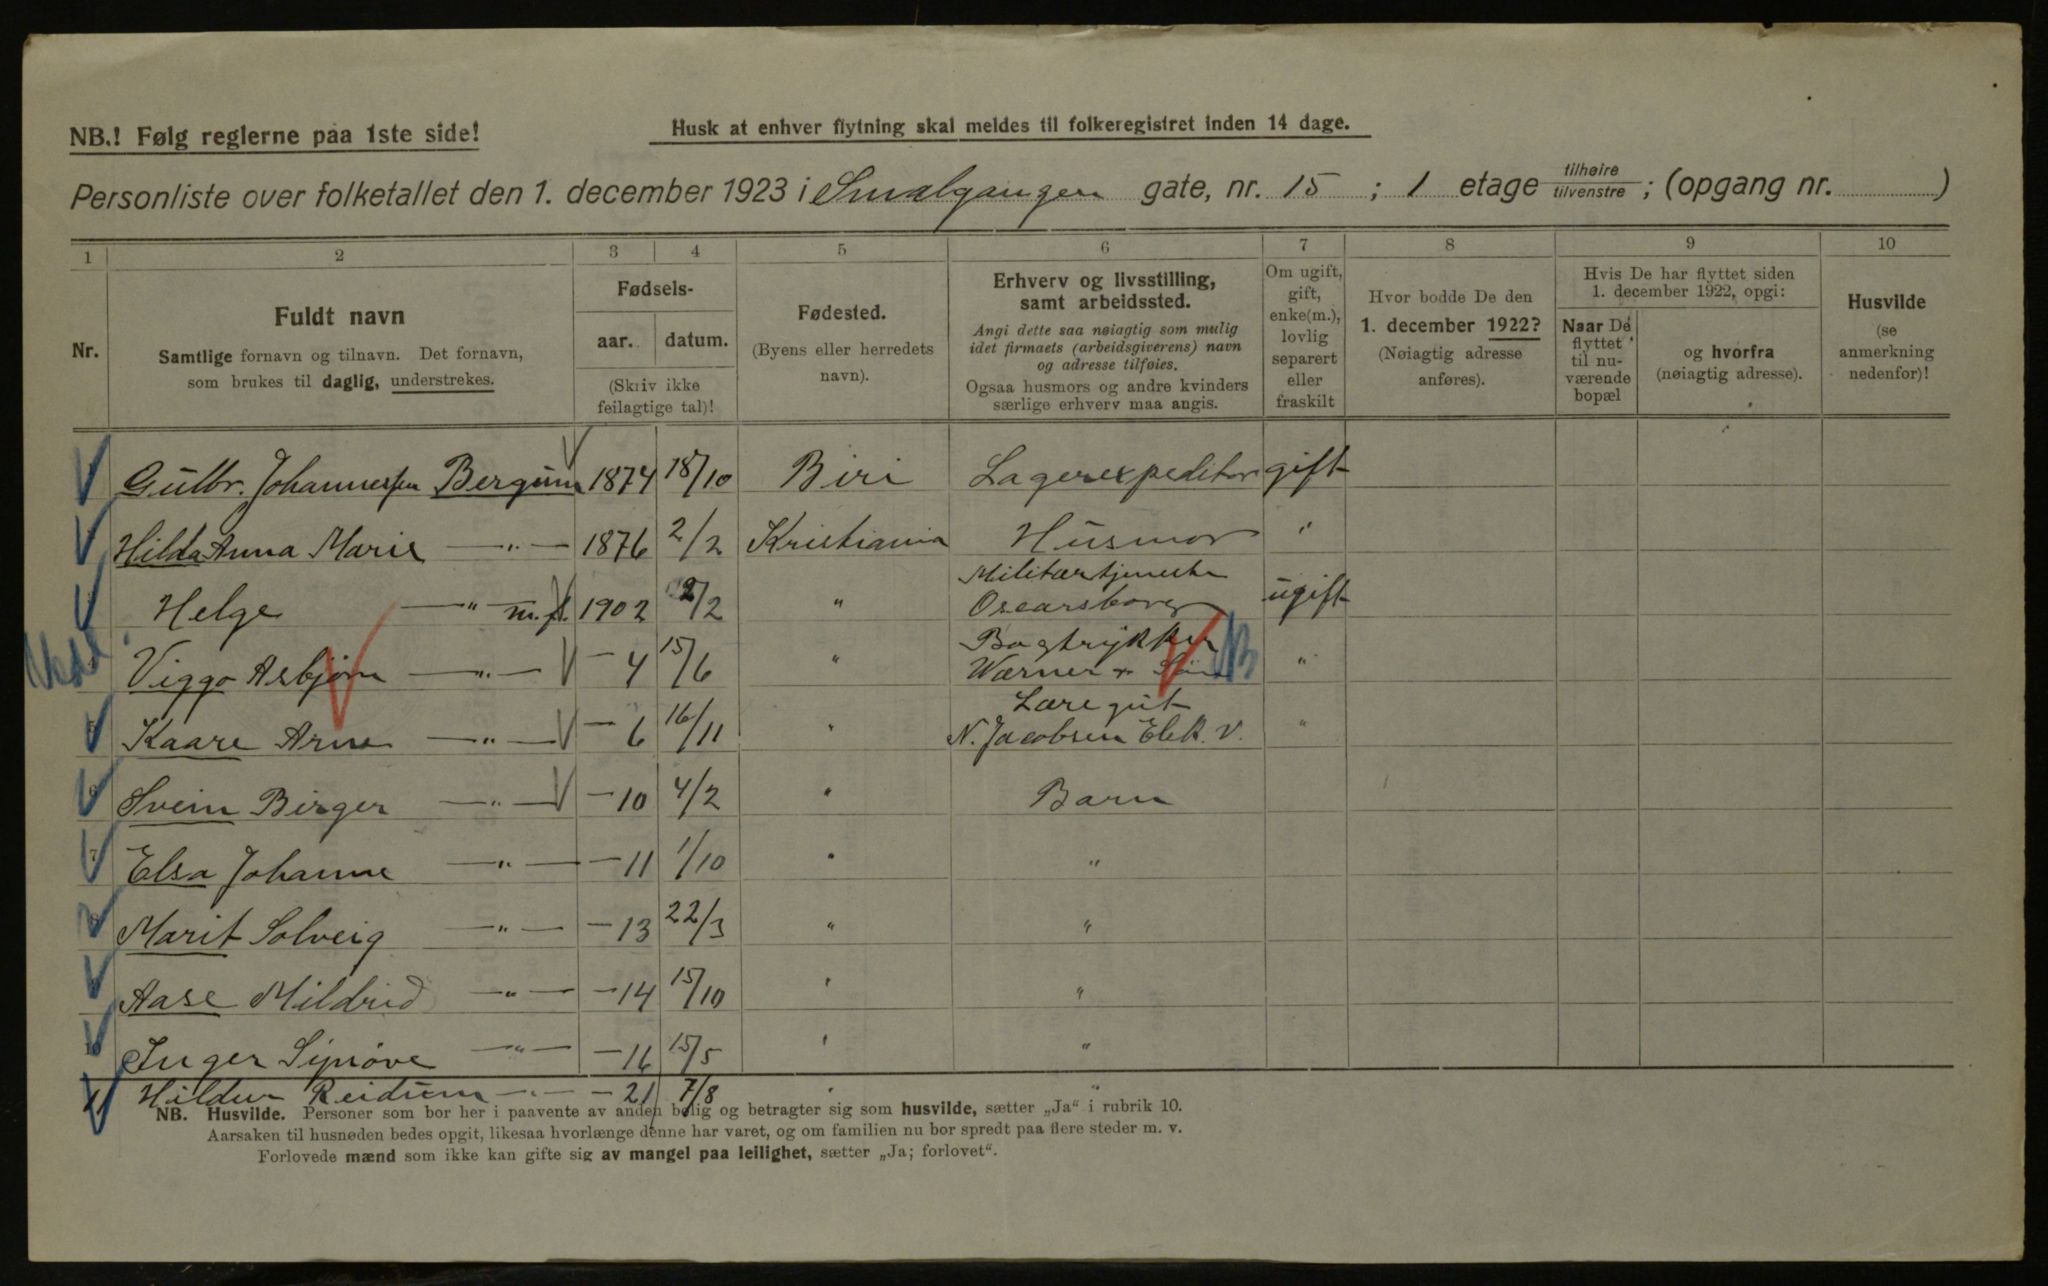 NB.! Følg reglerne paa 1ste side!
Husk at enhver flytning skal meldes til folkeregistret inden 14 dage.
Personliste over folketallet den 1. december 1923 i Smalgangen gate, nr. 15 ; 1 etage tilhøire tilvenstre ; (opgang nr. )
1 2 3 4 5 6 7 8 9 10
Nr.
Fuldt navn
Samtlige fornavn og tilnavn. Det fornavn,
som brukes til daglig, understrekes.
Fødsels-
aar. datum.
(Skriv ikke
feilagtige tal)!
Fødested.
(Byens eller herredets
navn).
Erhverv og livsstilling,
samt arbeidssted.
Angi dette saa nøiagtig som mulig
idet firmaets (arbeidsgiverens) navn
og adresse tilføies.
Ogsaa husmors og andre kvinders
særlige erhverv maa angis.
Om ugift,
gift,
enke(m.),
lovlig
separert
eller
fraskilt
Hvor bodde De den
1. december 1922?
(Nøiagtig adresse
anføres).
Hvis De har flyttet siden
1. december 1922, opgi:
Naar De
flyttet
til nu-
værende
bopæl
og hvorfra
(nøiagtig adresse).
Husvilde
(se
anmerkning
nedenfor)!
Gulbr. Johannessen Bergum 1874 18/10 Biri Lagerexpeditør gift
Hilda Anna Marie —"— 1876 2/2 Kristiania Husmor "
Militærtjeneste
Helge —"— m.f. 1902 2/2 " Oscarsborg ugift
Bogtrykker
Viggo Asbjørn —"— — 4 15/6 " Werner & Søn "
Læregut
5 Kaare Arne —"— — 6 16/11 " N. Jacobsen Elek. V. "
6 Svein Birger —"— — 10 4/2 " Barn
7 Elsa Johanne —"— — 11 1/10 " "
Marit Solveig —"— — 13 22/3 " "
Aase Mildrid —"— — 14 15/10 " "
10 Inger Synøve —"— — 16 15/5 " "
11 Hildur Reidun —"— — 21 7/8 " "
NB. Husvilde. Personer som bor her i paavente av anden bolig og betragter sig som husvilde, sætter „Ja“ i rubrik 10.
Aarsaken til husnøden bedes opgit, likesaa hvorlænge denne har varet, og om familien nu bor spredt paa flere steder m. v.
Forlovede mænd som ikke kan gifte sig av mangel paa leilighet, sætter „Ja; forlovet“.